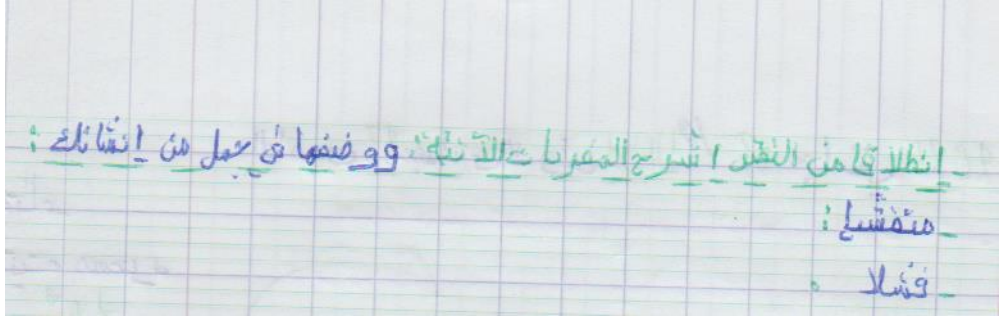 - إنطلاقا من النص إشرح المفردات الآتية: ووضفها في جمل من إنشائك :
- متفشيا :
- فشلا :